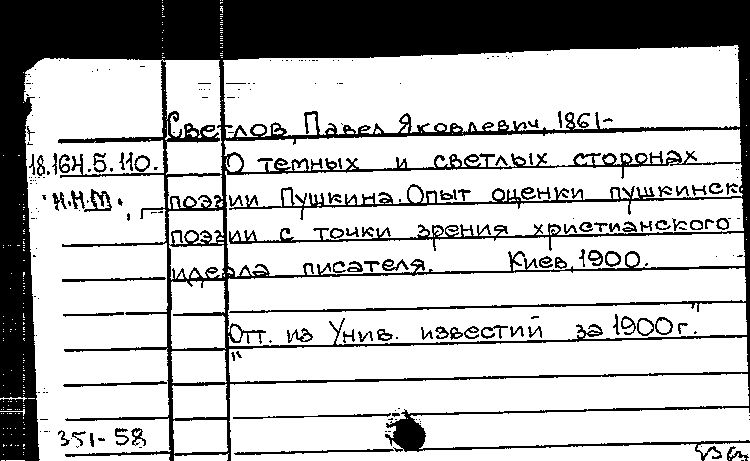 Светлов, Павел Яковлевич, 1861-
18.164.5.110. О темных и светлых сторонах
н.н.м. поэзии Пушкина. Опыт оценки пушкинско
поэзии с точки зрения христианского
идеала писателя. Киев, 1900.
Отт. из "Унив. известий за 1900 г."
351-58